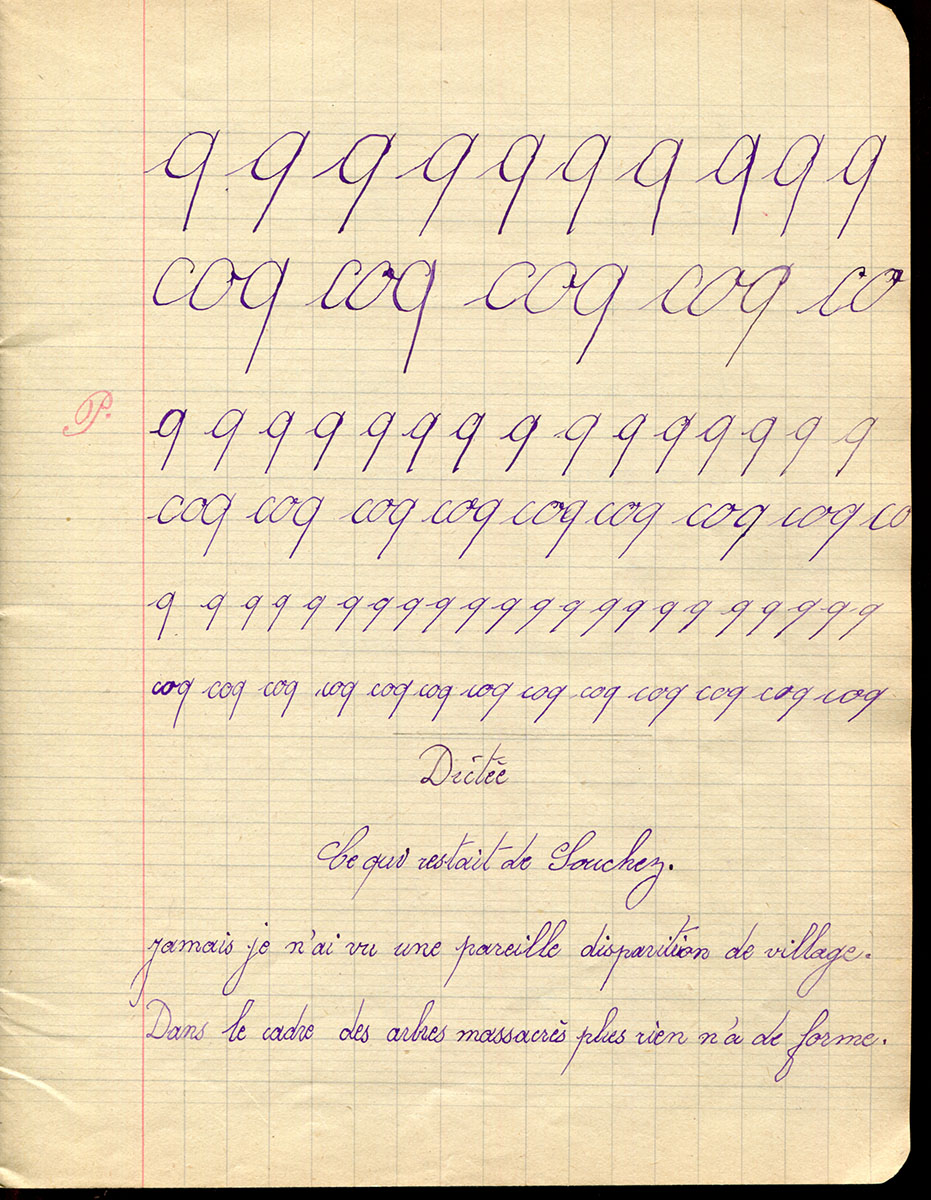 q q q q q q q q q q
coq coq coq coq co
P.
q q q q q q q q q q q q q q q
coq coq coq coq coq coq coq coq co
q q q q q q q q q q q q q q q q q q q q q q
coq coq coq coq coq coq coq coq coq coq coq coq coq
Dictée
Ce qui restait de Souchez.
Jamais je n'ai vu une pareille disparition de village.
Dans le cadre des arbres massacrés plus rien n'a de forme.